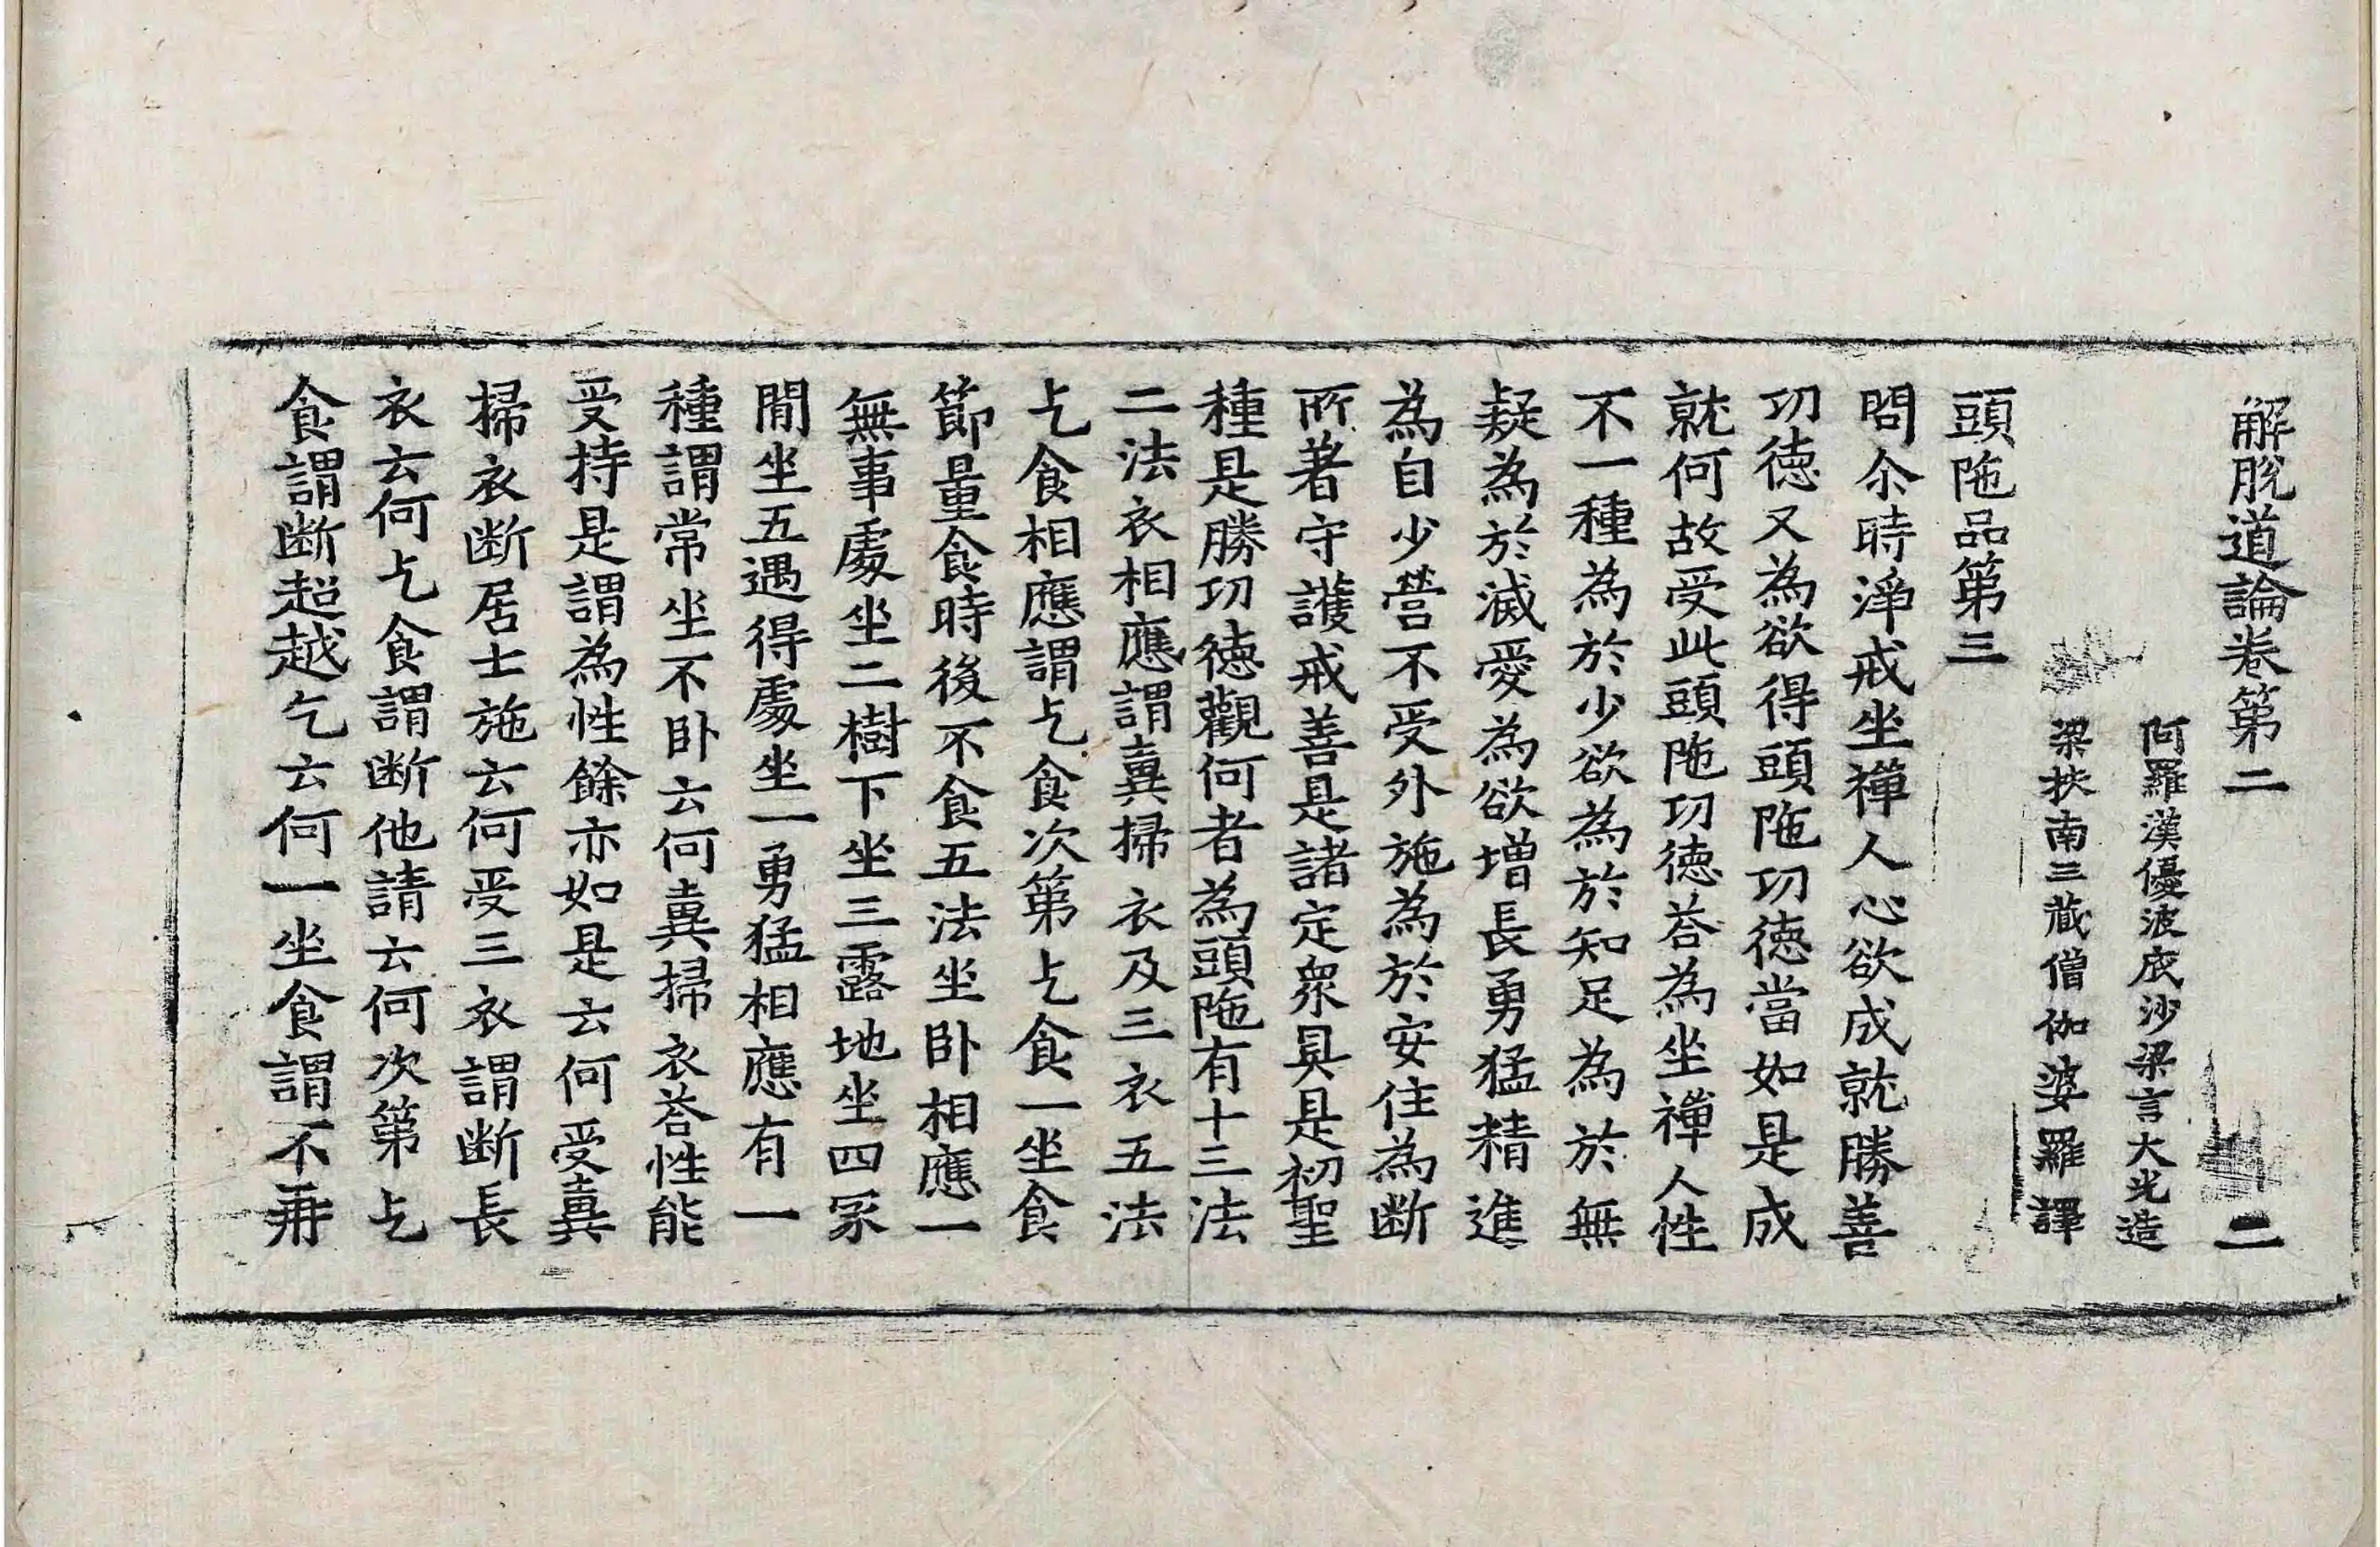 解脫道論卷第二　二
阿羅漢優波底沙梁言大光造
梁扶南三藏僧伽婆羅譯
頭陁品第三
問尒時淨戒坐禪人心欲成就勝善
功德又為欲得頭陁功德當如是成
就何故受此頭陁功德荅為坐禪人性
不一種為於少欲為於知足為於無
疑為於滅愛為欲增長勇猛精進
為自少營不受外施為於安住為斷
所著守護戒善是諸定衆具是初聖
種是勝功德觀何者為頭陁有十三法
二法衣相應謂糞掃衣及三衣五法
乞食相應謂乞食次第乞食一坐食
節量食時後不食五法坐卧相應一
無事處坐二樹下坐三露地坐四冢
間坐五遇得處坐一勇猛相應有一
種謂常坐不卧云何糞掃衣荅性能
受持是謂為性餘亦如是云何受糞
掃衣斷居士施云何受三衣謂斷長
衣云何乞食謂斷他請云何次第乞
食謂斷超越乞云何一坐食謂不再